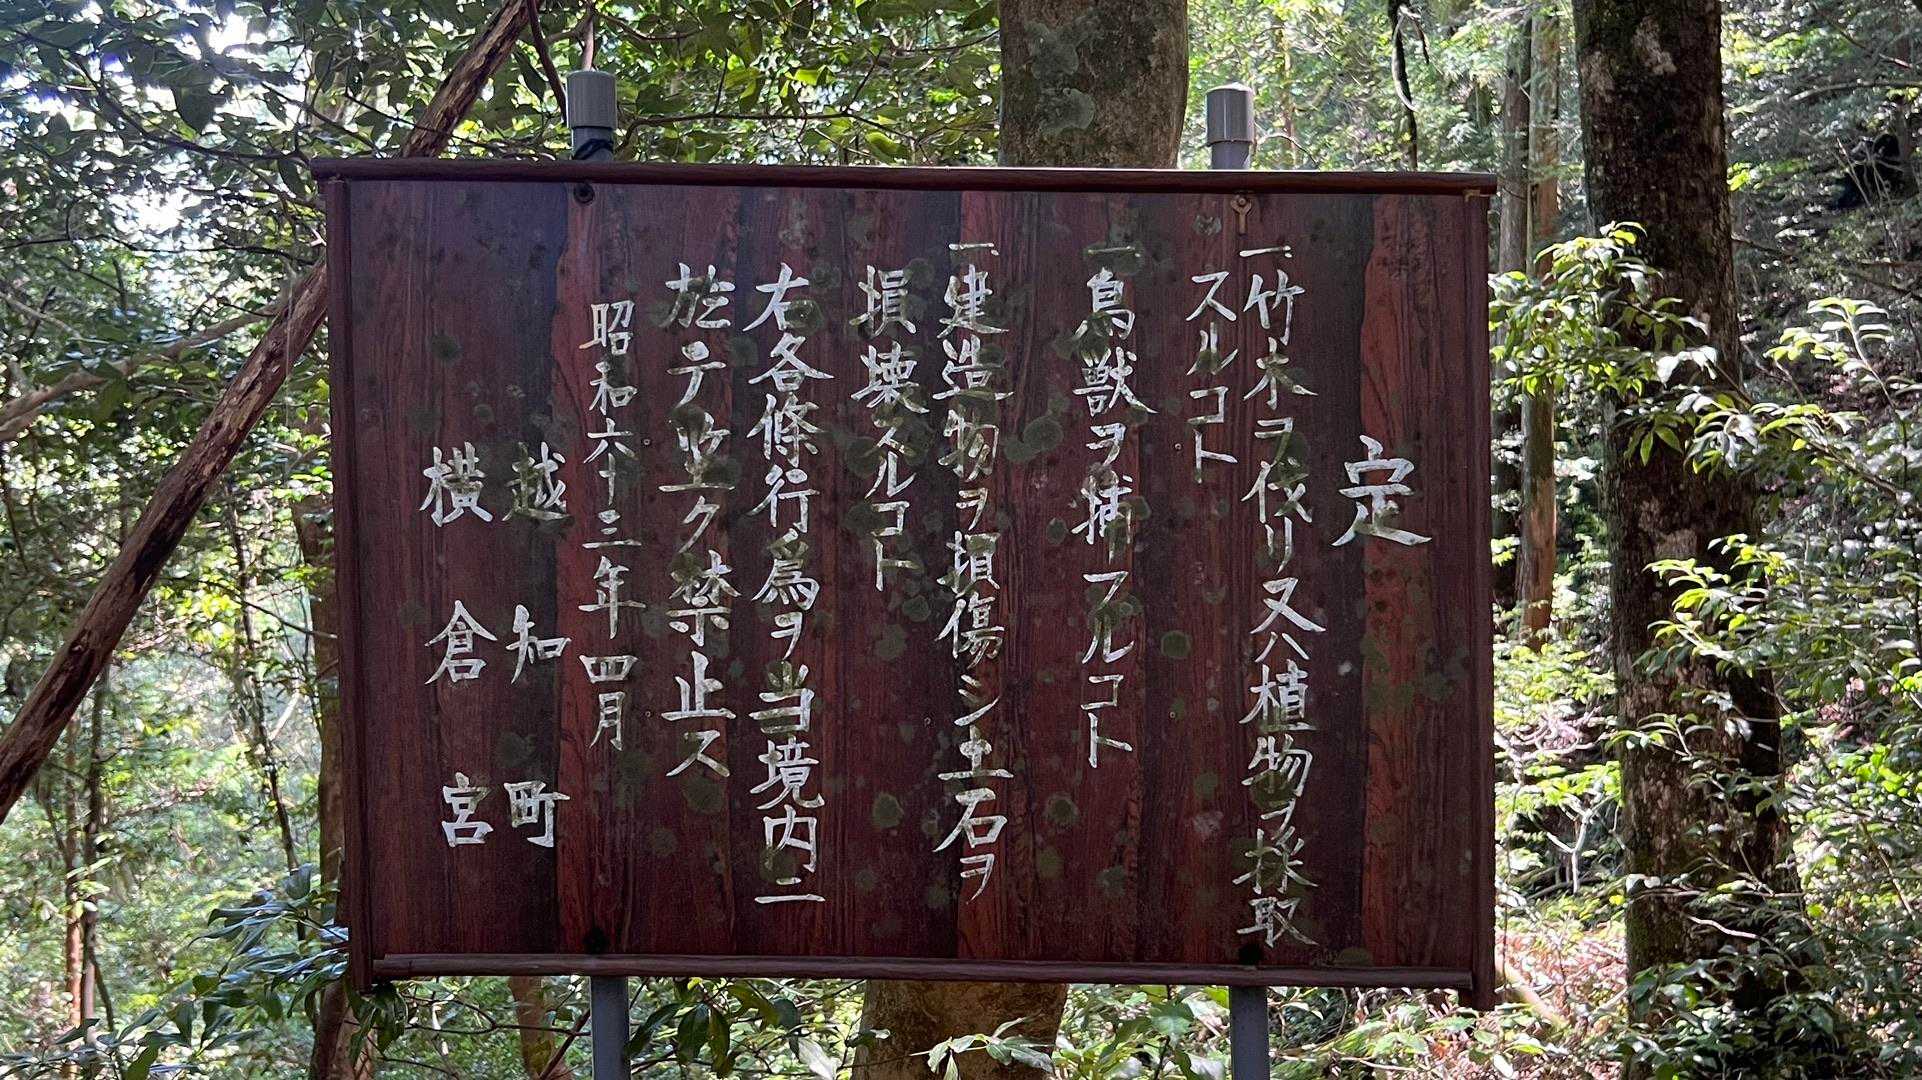 定
一竹木ヲ伐リ又ハ植物ヲ採取
スルコト
一鳥獣ヲ捕フルコト
一建造物ヲ損傷シ土石ヲ
損壊スルコト
右各條行爲ヲ当境内ニ
於テ堅ク禁止ス
昭和六十三年四月
越知町
横倉宮